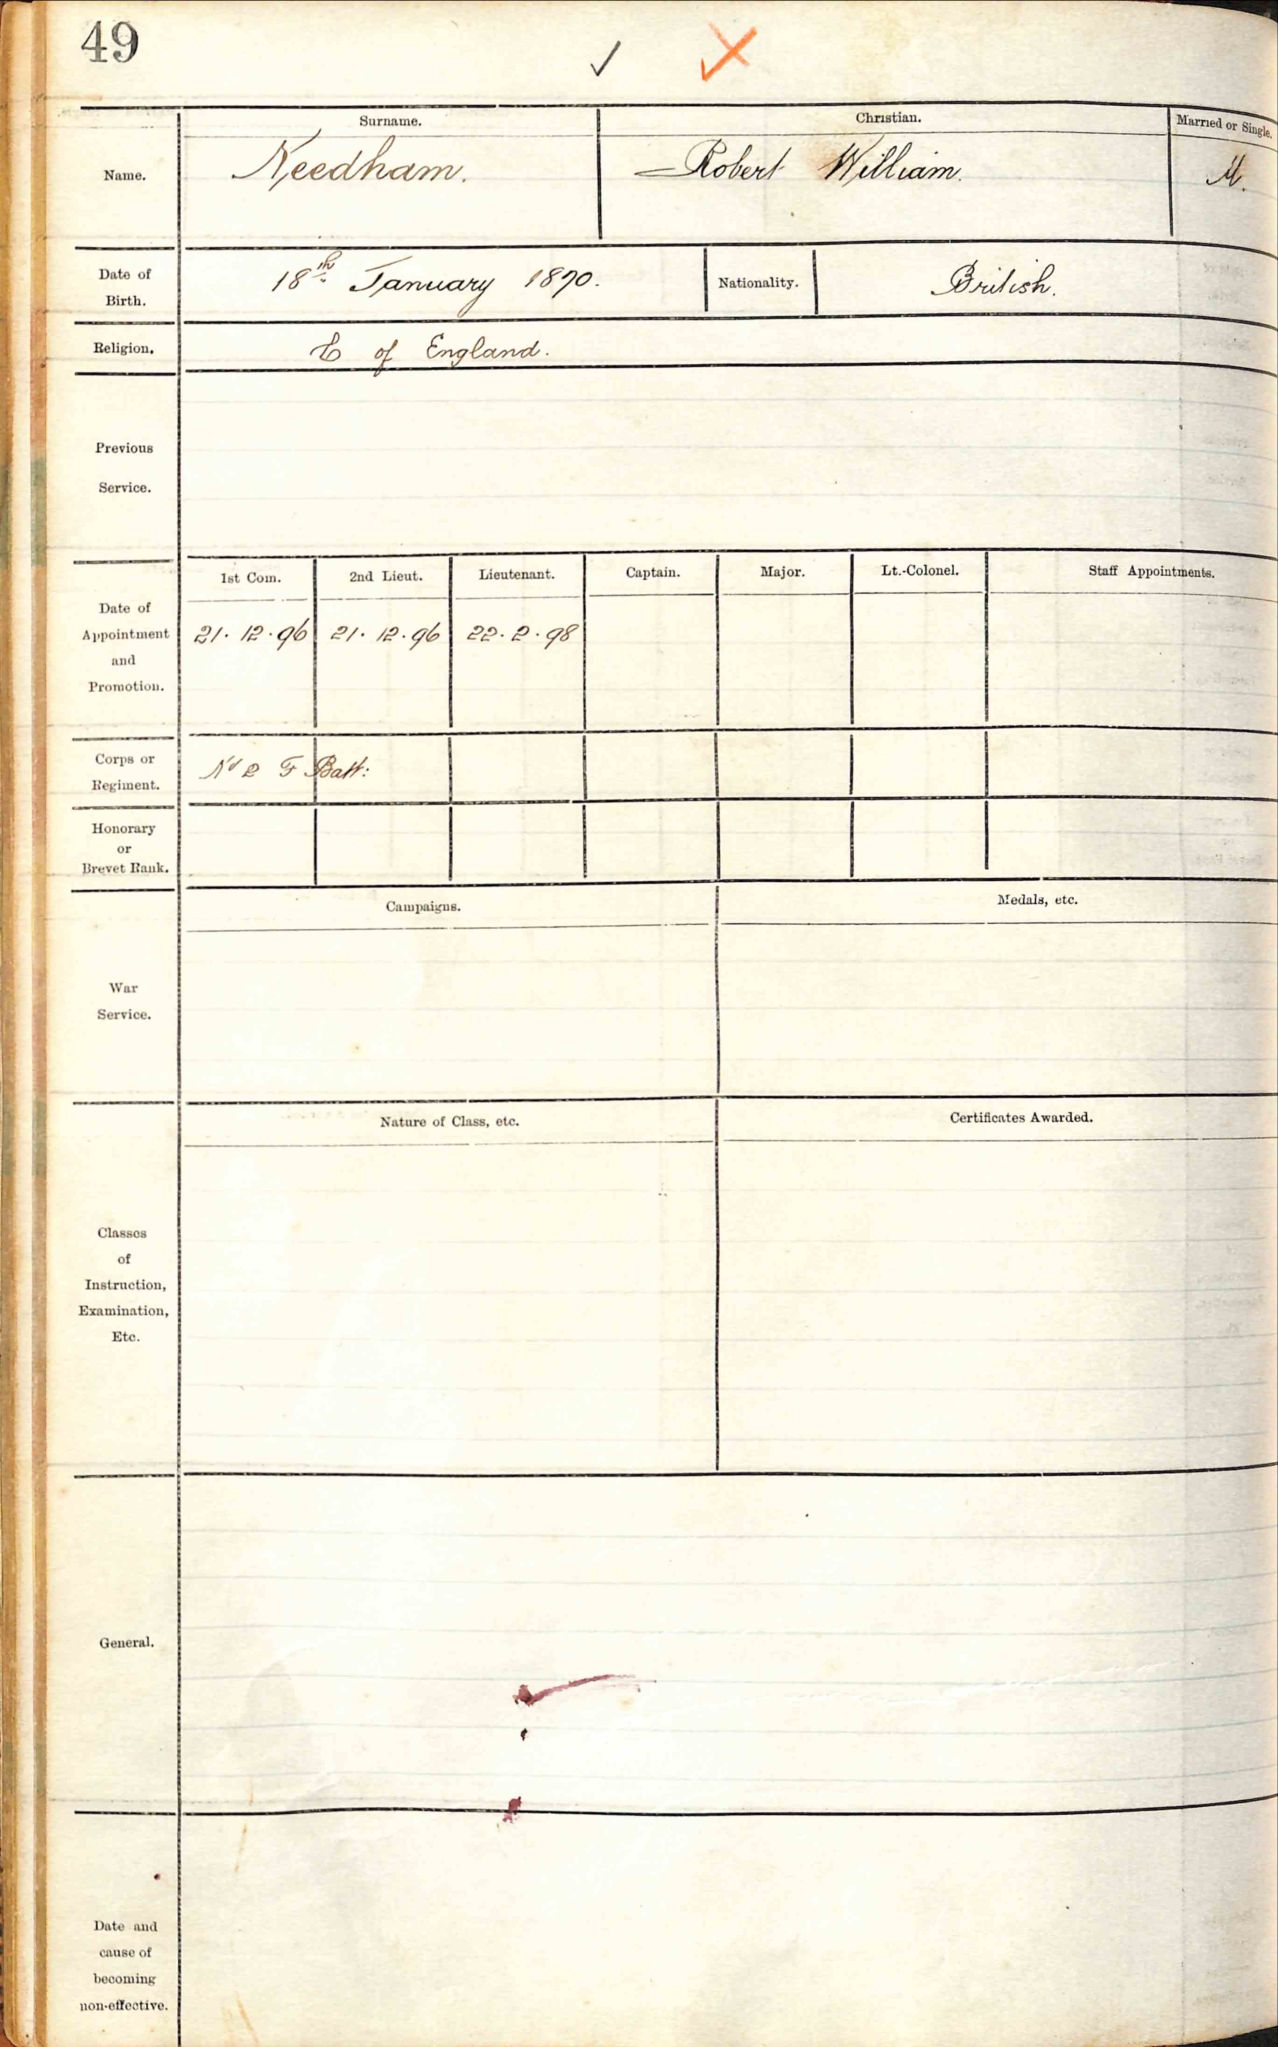 49
Surname. Christian. Married or Single.
Name. Needham. Robert William. M.
Date of Birth. 18th January 1870. Nationality. British.
Religion. C of England.
Previous
Service.
1st Com. 2nd Lieut. Lieutenant. Captain. Major. Lt.-Colonel. Staff Appointments.
Date of
Appointment 21.12.96 21.12.96 22.2.98
and
Promotion.
Corps or
Regiment. No 2 F Batt:
Honorary
or
Brevet Rank.
Campaigns. Medals, etc.
War
Service.
Nature of Class, etc. Certificates Awarded.
Classes
of
Instruction,
Examination,
Etc.
General.
Date and
cause of
becoming
non-effective.